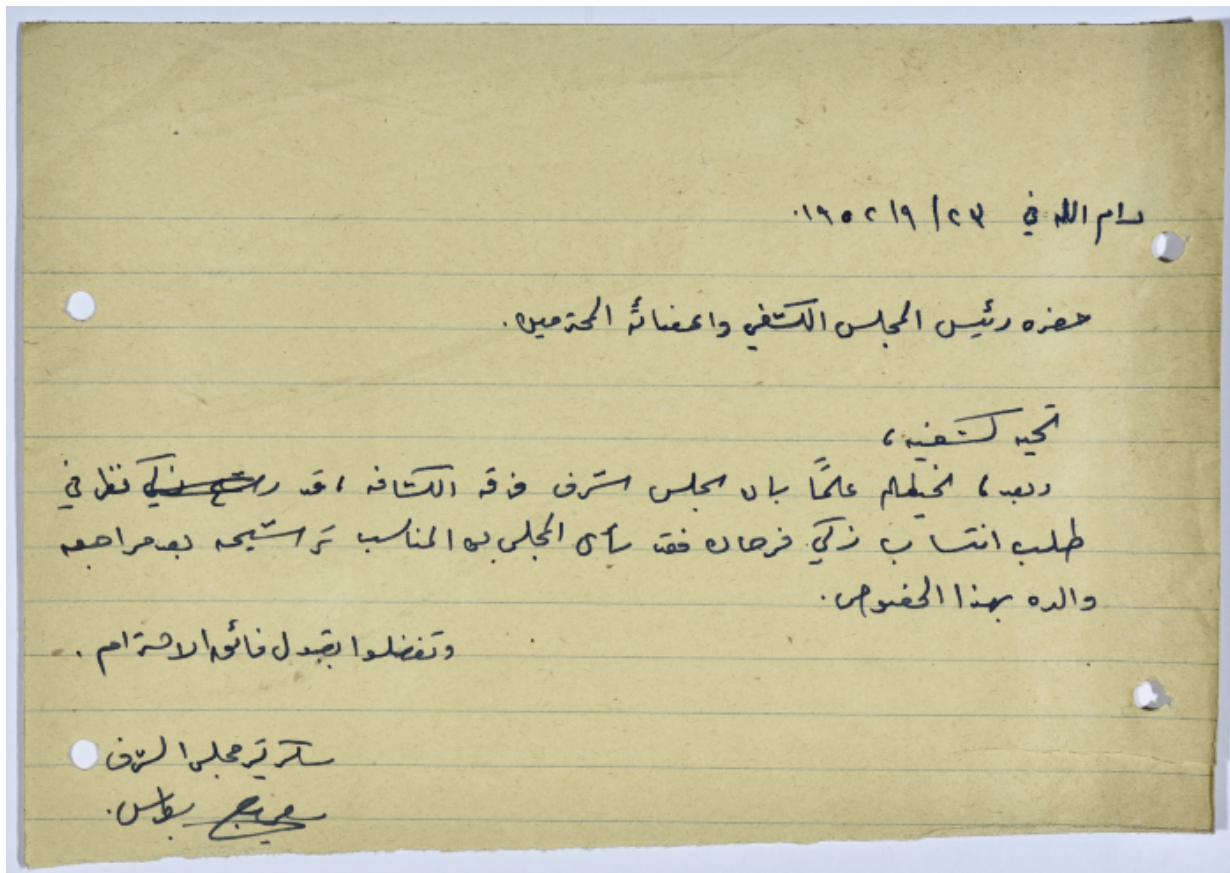 رام الله في ٢٣/٩/١٩٥٢.
حضرة رئيس المجلس الكشفي واعضائه المحترمين.
تحيه كشفيه،
وبعد، نحيطكم علمًا بان مجلس شرف فرقه الكشافه، قد نظر في
طلب انتساب زكي فرحان فقد رأى المجلس من المناسب ترشيحه بعد مراجعه
والده بهذا الخصوص.
وتفضلوا بقبول فائق الاحترام.
سكرتير مجلس الشرف